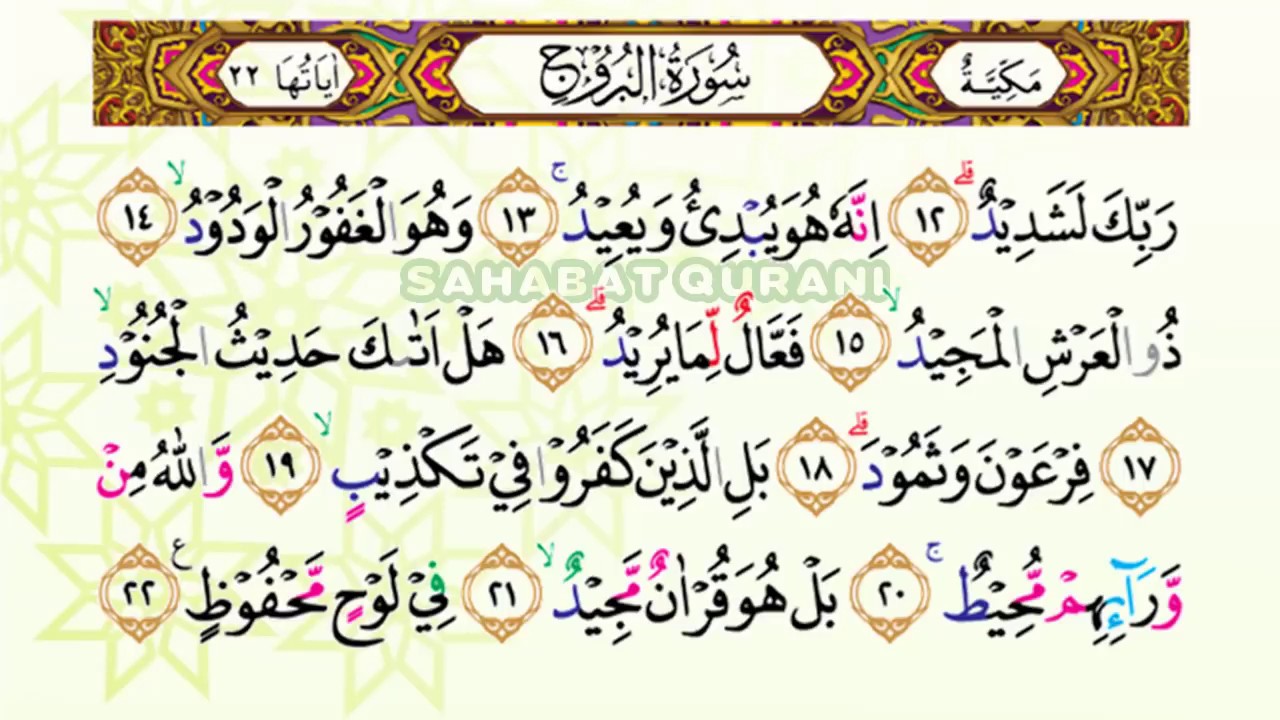 مَكِّيَّةٌ سُورَةُ الْبُرُوْجِ اٰيَاتُهَا ٢٢
رَبِّكَ لَشَدِيْدٌ ۗ ١٢ اِنَّهٗ هُوَ يُبْدِئُ وَيُعِيْدُ ۚ ١٣ وَهُوَ الْغَفُوْرُ الْوَدُوْدُ ۙ ١٤
SAHABAT QURANI
ذُو الْعَرْشِ الْمَجِيْدُ ۙ ١٥ فَعَّالٌ لِّمَا يُرِيْدُ ۗ ١٦ هَلْ اَتٰىكَ حَدِيْثُ الْجُنُوْدِ ۙ
١٧ فِرْعَوْنَ وَثَمُوْدَ ۗ ١٨ بَلِ الَّذِيْنَ كَفَرُوْا فِيْ تَكْذِيْبٍ ۙ ١٩ وَّاللّٰهُ مِنْ
وَّرَاۤىِٕهِمْ مُّحِيْطٌ ۚ ٢٠ بَلْ هُوَ قُرْاٰنٌ مَّجِيْدٌ ۙ ٢١ فِيْ لَوْحٍ مَّحْفُوْظٍ ࣖ ٢٢